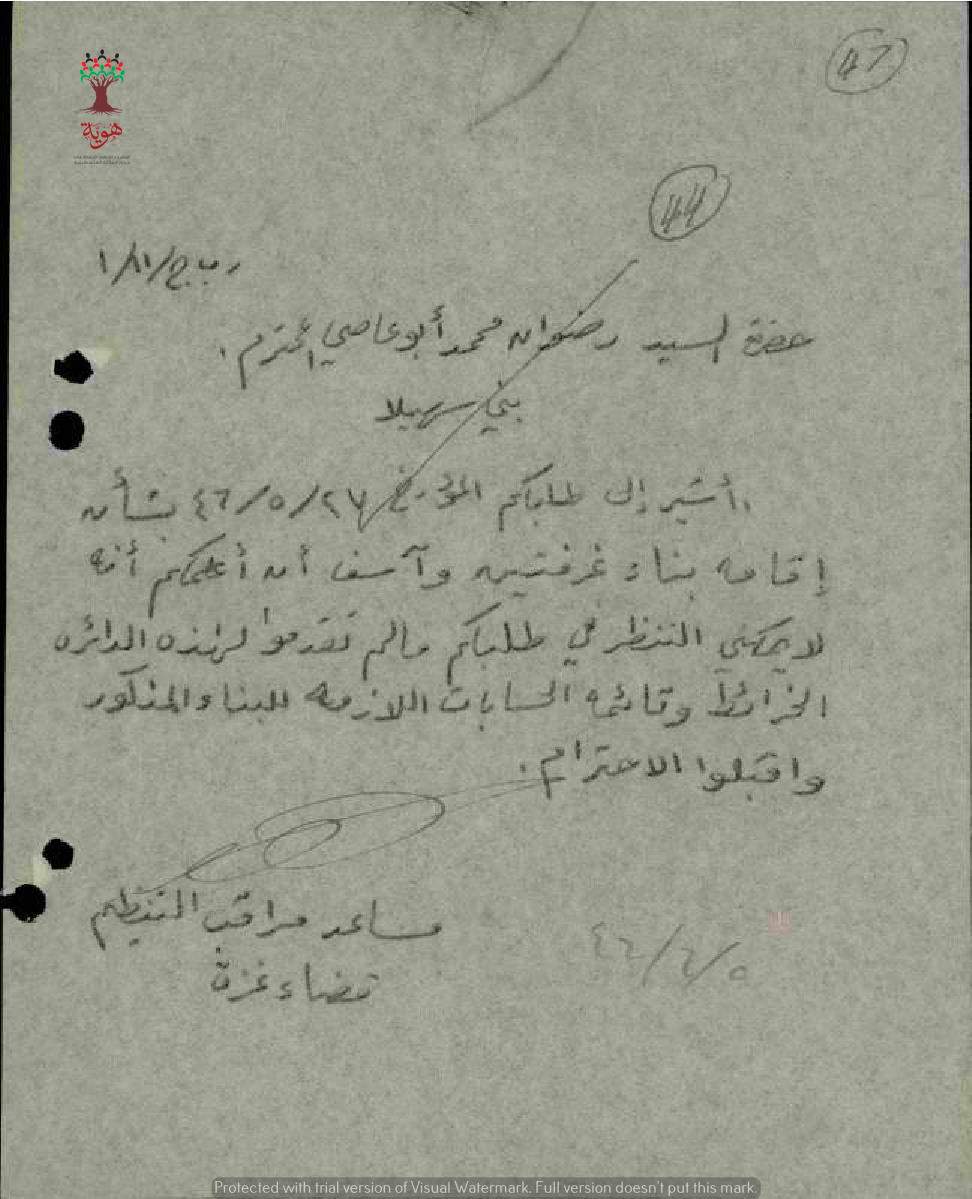 47
هوية
44
ر ب ج/١٨١/١
حضرة السيد رضوان محمد أبو عاصي المحترم.
بني سهيلا
أشير إلى طلبكم المؤرخ ٤٦/٥/٢٧ بشأن
إقامه بناء غرفتين وآسف أن أعلمكم أنه
لا يمكنني النظر في طلبكم مالم تقدموا لهذه الدائره
الخرائط وقائمة الحسابات اللازمه للبناء المذكور
واقبلوا الاحترام.
مساعد مراقب التنظيم
قضاء غزة
٤٦/٦/٥
Protected with trial version of Visual Watermark. Full version doesn't put this mark.